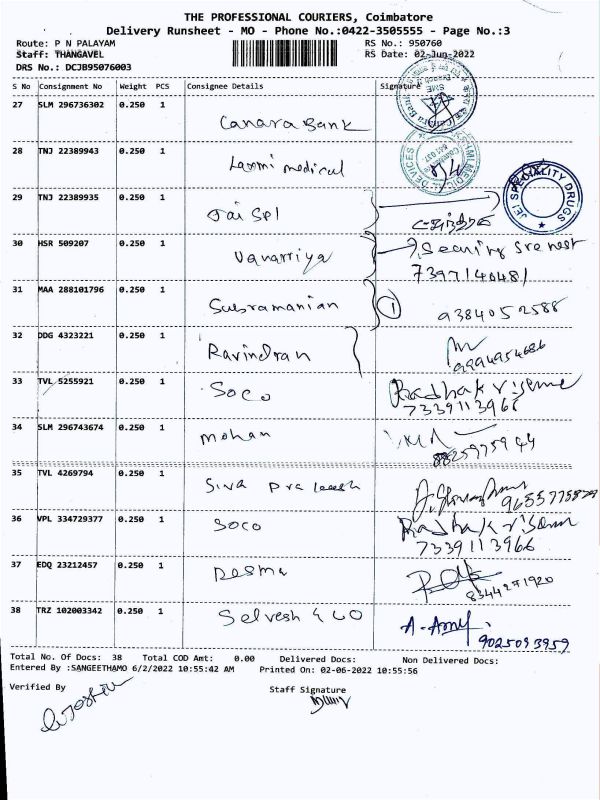 THE PROFESSIONAL COURIERS, Coimbatore
Delivery Runsheet - MO - Phone No.:0422-3505555 - Page No.:3
Route: P N PALAYAM RS No.: 950760
Staff: THANGAVEL RS Date: 02-Jun-2022
DRS No.: DCJB95076003
S No Consignment No Weight PCS Consignee Details Signature
27 SLM 296736302 0.250 1 Canara Bank
28 TNJ 22389943 0.250 1 Laxmi medical
29 TNJ 22389935 0.250 1 Jai Spl
JEI SPECIALITY DRUGS
30 HSR 509207 0.250 1 Vanarriya
7397140481
31 MAA 288101796 0.250 1 Subramanian 1 9384052588
32 DDG 4323221 0.250 1 Ravindran 9994954686
33 TVL 5255921 0.250 1 Soco Radhakrisene
7339113966
34 SLM 296743674 0.250 1 mohan
8825975944
35 TVL 4269794 0.250 1 Siva Prakash
36 VPL 334729377 0.250 1 Soco
7339113966
37 EDQ 23212457 0.250 1 Resma 8344271920
38 TRZ 102003342 0.250 1 Selvesh & CO
9025093959
Total No. Of Docs: 38 Total COD Amt: 0.00 Delivered Docs: Non Delivered Docs:
Entered By :SANGEETHAMO 6/2/2022 10:55:42 AM Printed On: 02-06-2022 10:55:56
Verified By Staff Signature